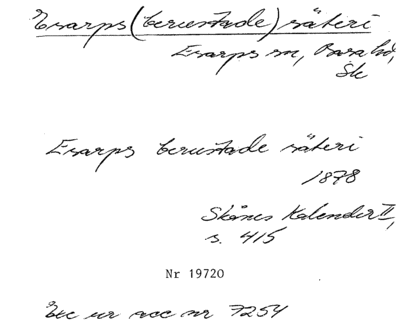 Esarps (berustade) säteri
Esarps sn, Bara hd,
Sk
Esarps berustade säteri
1878
Skånes Kalender II,
s. 415
Nr 19720
Exc ur acc nr 7254